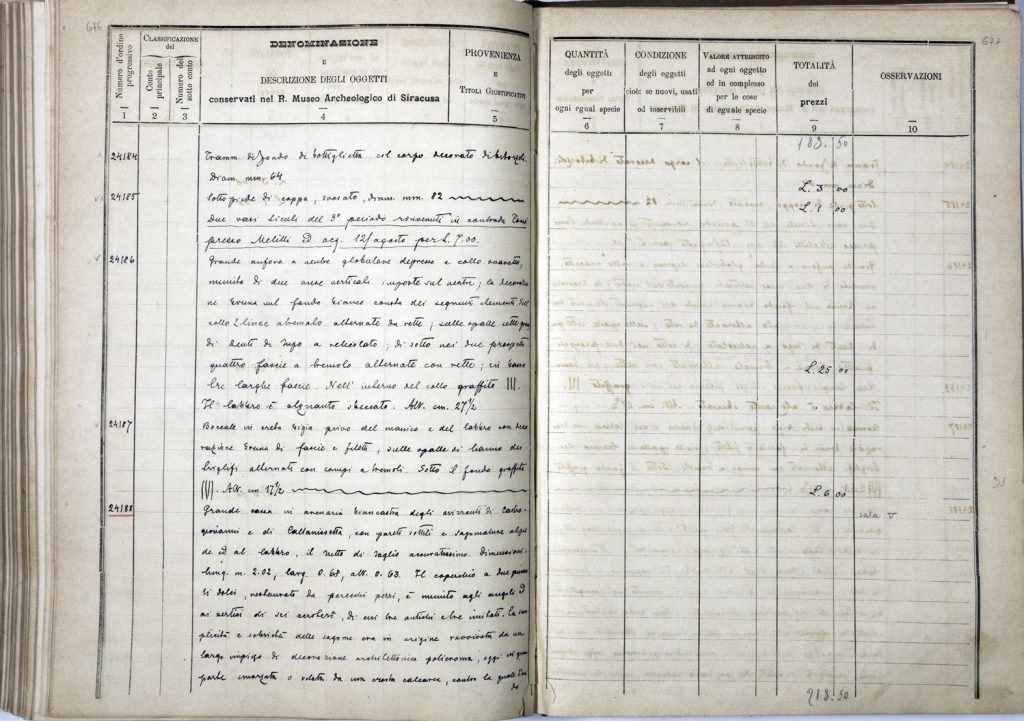 676
Numero d'ordine progressivo
CLASSIFICAZIONE del
Conto principale
Numero del sotto conto
DENOMINAZIONE
E
DESCRIZIONE DEGLI OGGETTI
conservati nel R. Museo Archeologico di Siracusa
PROVENIENZA
E
TITOLI GIUSTIFICATIVI
1 2 3 4 5
24184 Framm. di fondo di bottiglietta col corpo decorato di
Diam. mm. 64
24185 Sottopiede di coppa, svasato, diam. mm. 82
Due vasi siculi del 3º periodo rinvenuti in contrada
presso Melilli ed acq. 12/agosto per L. 7.00.
24186 Grande anfora a ventre globulare depresso e collo svasato,
munita di due anse verticali imposte sul ventre; la decorazio
ne bruna sul fondo bianco consta dei seguenti elementi. Sul
collo 2 linee a tremolo alternate da rette; sulle spalle
di denti di lupo a reticolato; di sotto nei due prospetti
quattro fascie a tremolo alternate con rette; in basso
tre larghe fascie. Nell' interno del collo graffito III.
Il labbro è alquanto sbeccato. Alt. cm. 27 1/2
24187 Boccale in creta bigia privo del manico e del labbro con deco
razione bruna di fascie e filetti; sulle spalle si hanno dei
triglifi alternati con campi a tremoli. Sotto il fondo graffito
Alt. cm. 17 1/2
24188 Grande cassa in arenaria biancastra degli orizzonti di Castro-
giovanni e di Caltanissetta, con pareti sottili e sagomature al pie
de ed al labbro, il tutto di taglio accuratissimo. Dimensioni:
lung. m. 2.02, larg. 0.68, alt. 0.63. Il coperchio a due pioven
ti dolci, restaurato da parecchi pezzi, è munito agli angoli ed
ai vertici di sei acroteri, di cui tre antichi e tre imitati. La sem
plicità e sobrietà delle sagome era in origine ravvivata da un
largo impiego di decorazione architettonica policroma, oggi in gran
parte smorzata o velata da una crosta calcarea, contro la quale
677
QUANTITÀ
degli oggetti
per
ogni egual specie
6
CONDIZIONE
degli oggetti
cioè: se nuovi, usati
od inservibili
7
VALORE ATTRIBUITO
ad ogni oggetto
ed in complesso
per le cose
di eguale specie
8
TOTALITÀ
dei
prezzi
9
OSSERVAZIONI
10
183.50
L. 3 00
L. 1 00
L. 25 00
L. 6 00
sala V
218.50